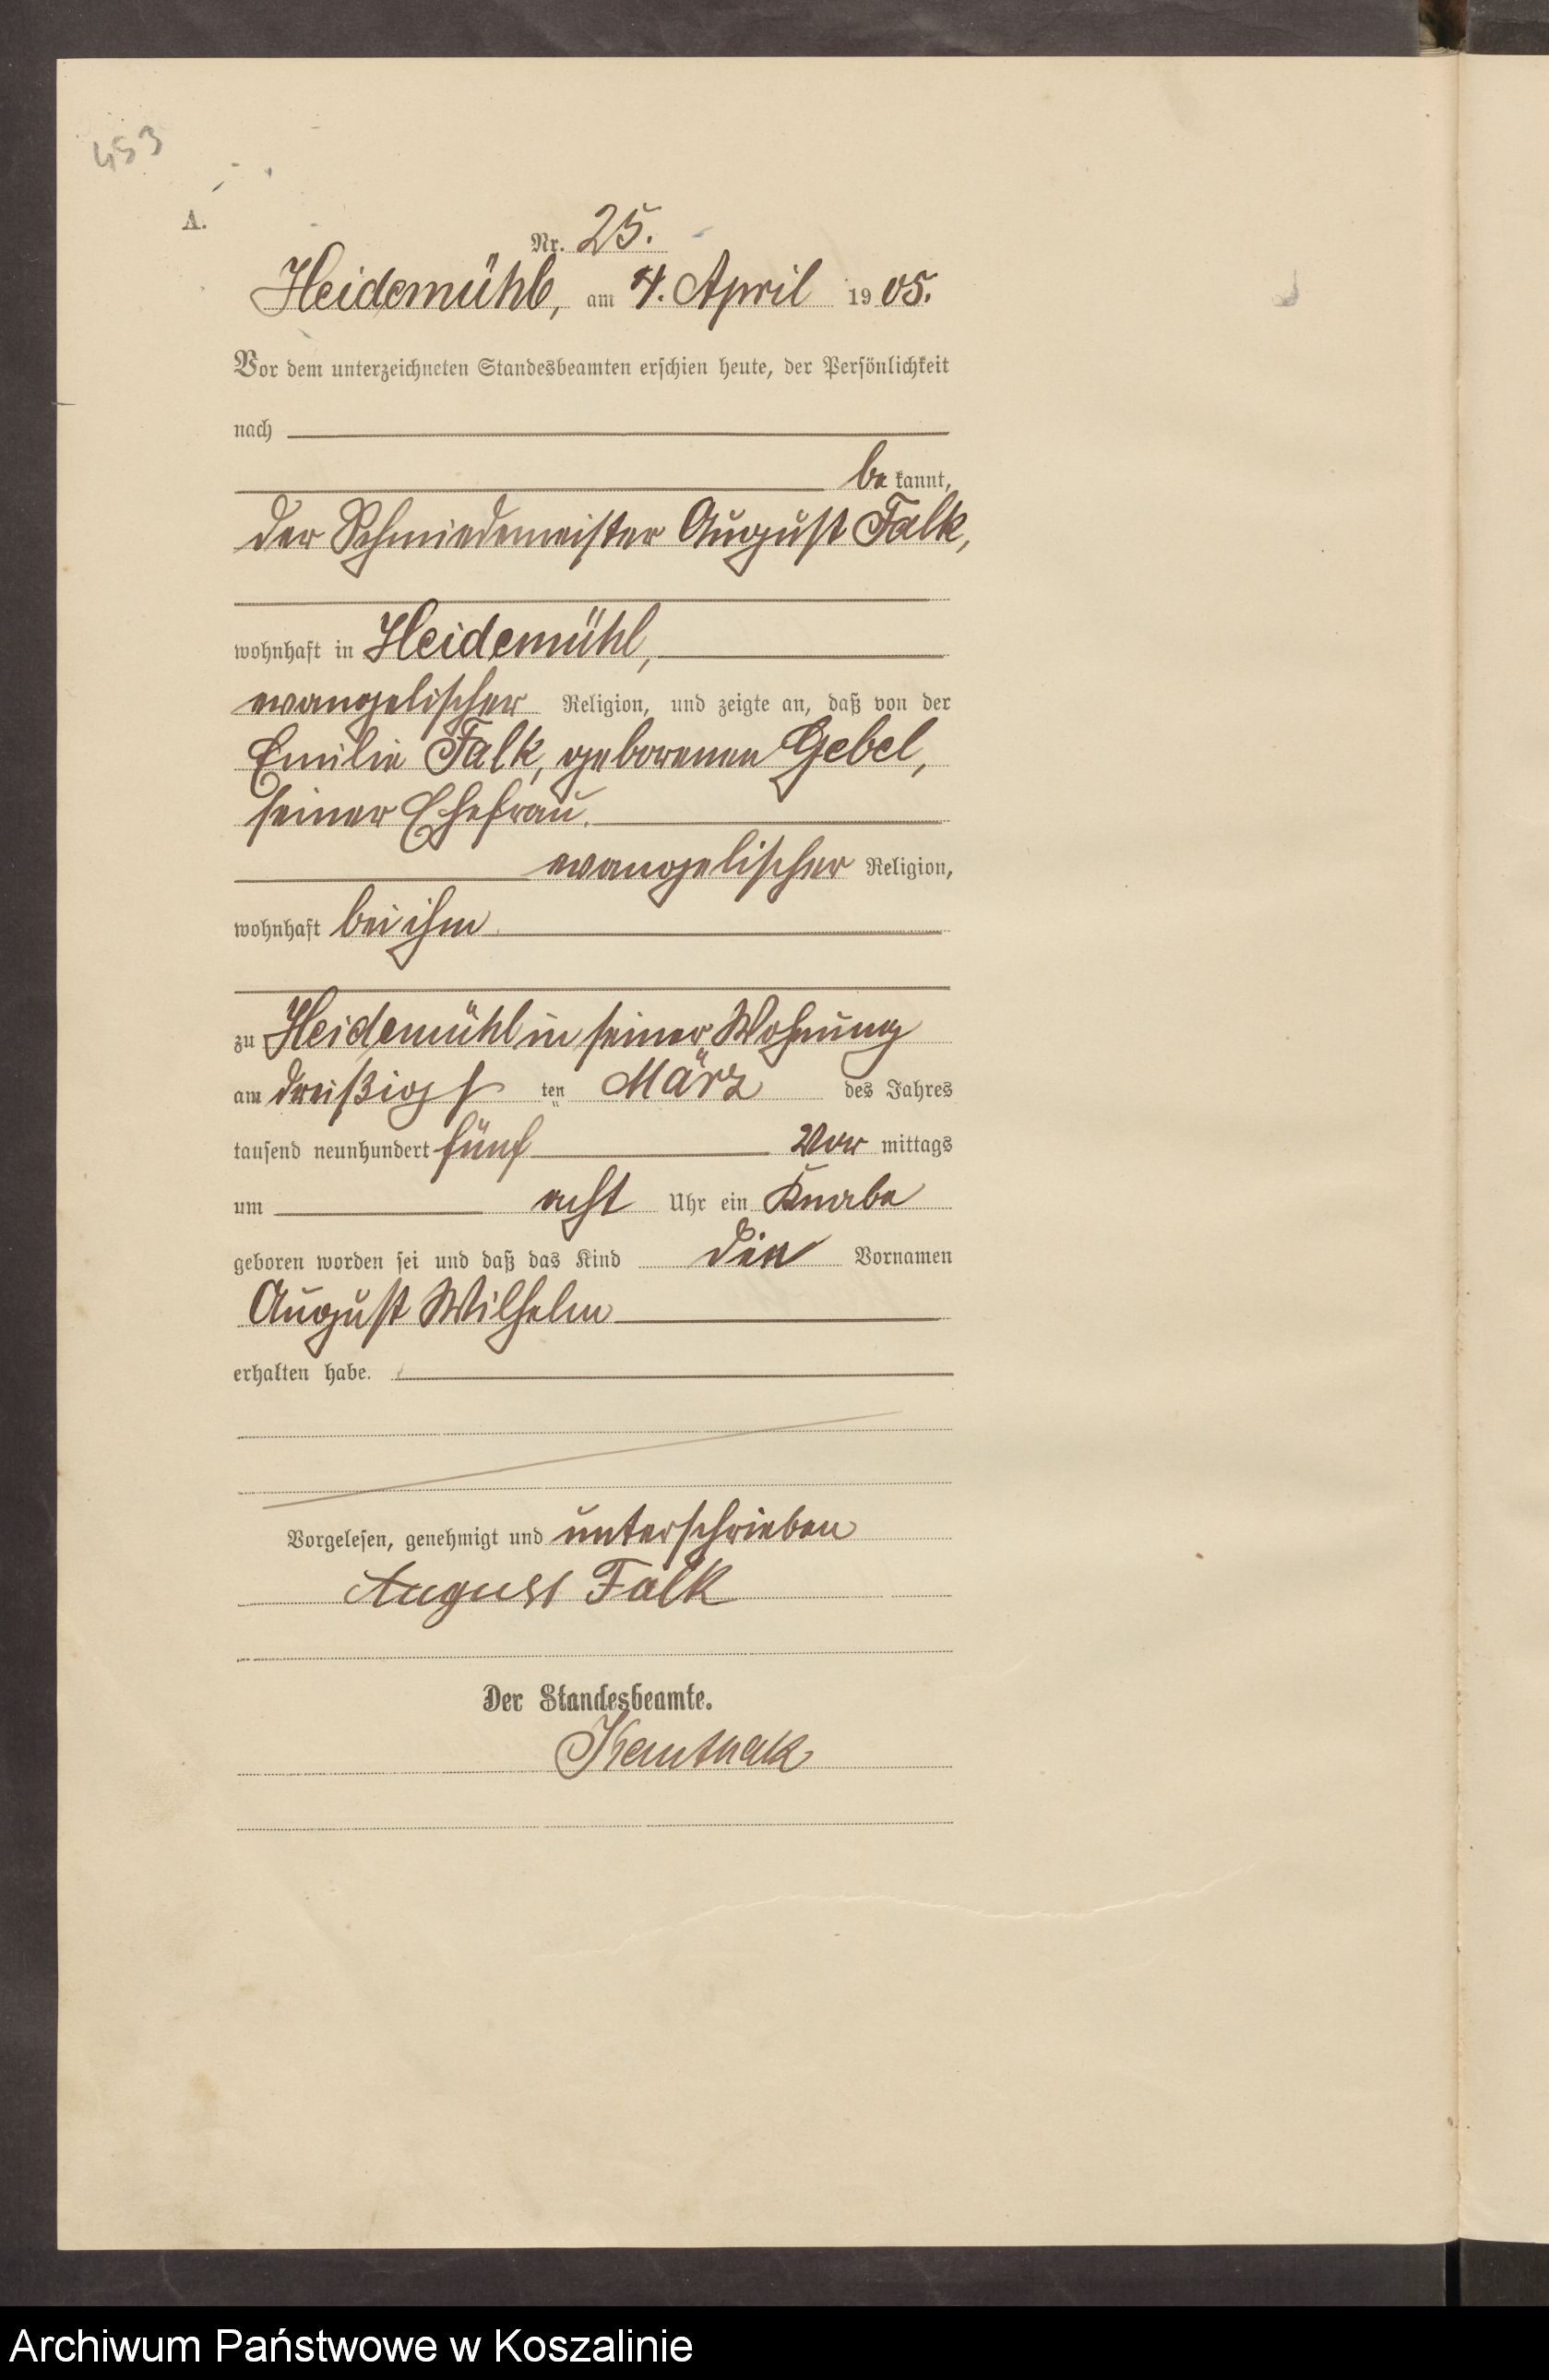 453
A.
Nr. 25.
Heidemühl, am 4. April 1905.
Vor dem unterzeichneten Standesbeamten erschien heute, der Persönlichkeit
nach
be kannt,
der Schmiedemeister August Falk,
wohnhaft in Heidemühl,
evangelischer Religion, und zeigte an, daß von der
Emilie Falk, geborenen Gebel,
seiner Ehefrau,
evangelischer Religion,
wohnhaft bei ihm
zu Heidemühl in seiner Wohnung
am dreißigst ten März des Jahres
tausend neunhundert fünf Vor mittags
um acht Uhr ein Knabe
geboren worden sei und daß das Kind die Vornamen
August Wilhelm
erhalten habe.
Vorgelesen, genehmigt und unterschrieben
August Falk
Der Standesbeamte.
Archiwum Państwowe w Koszalinie